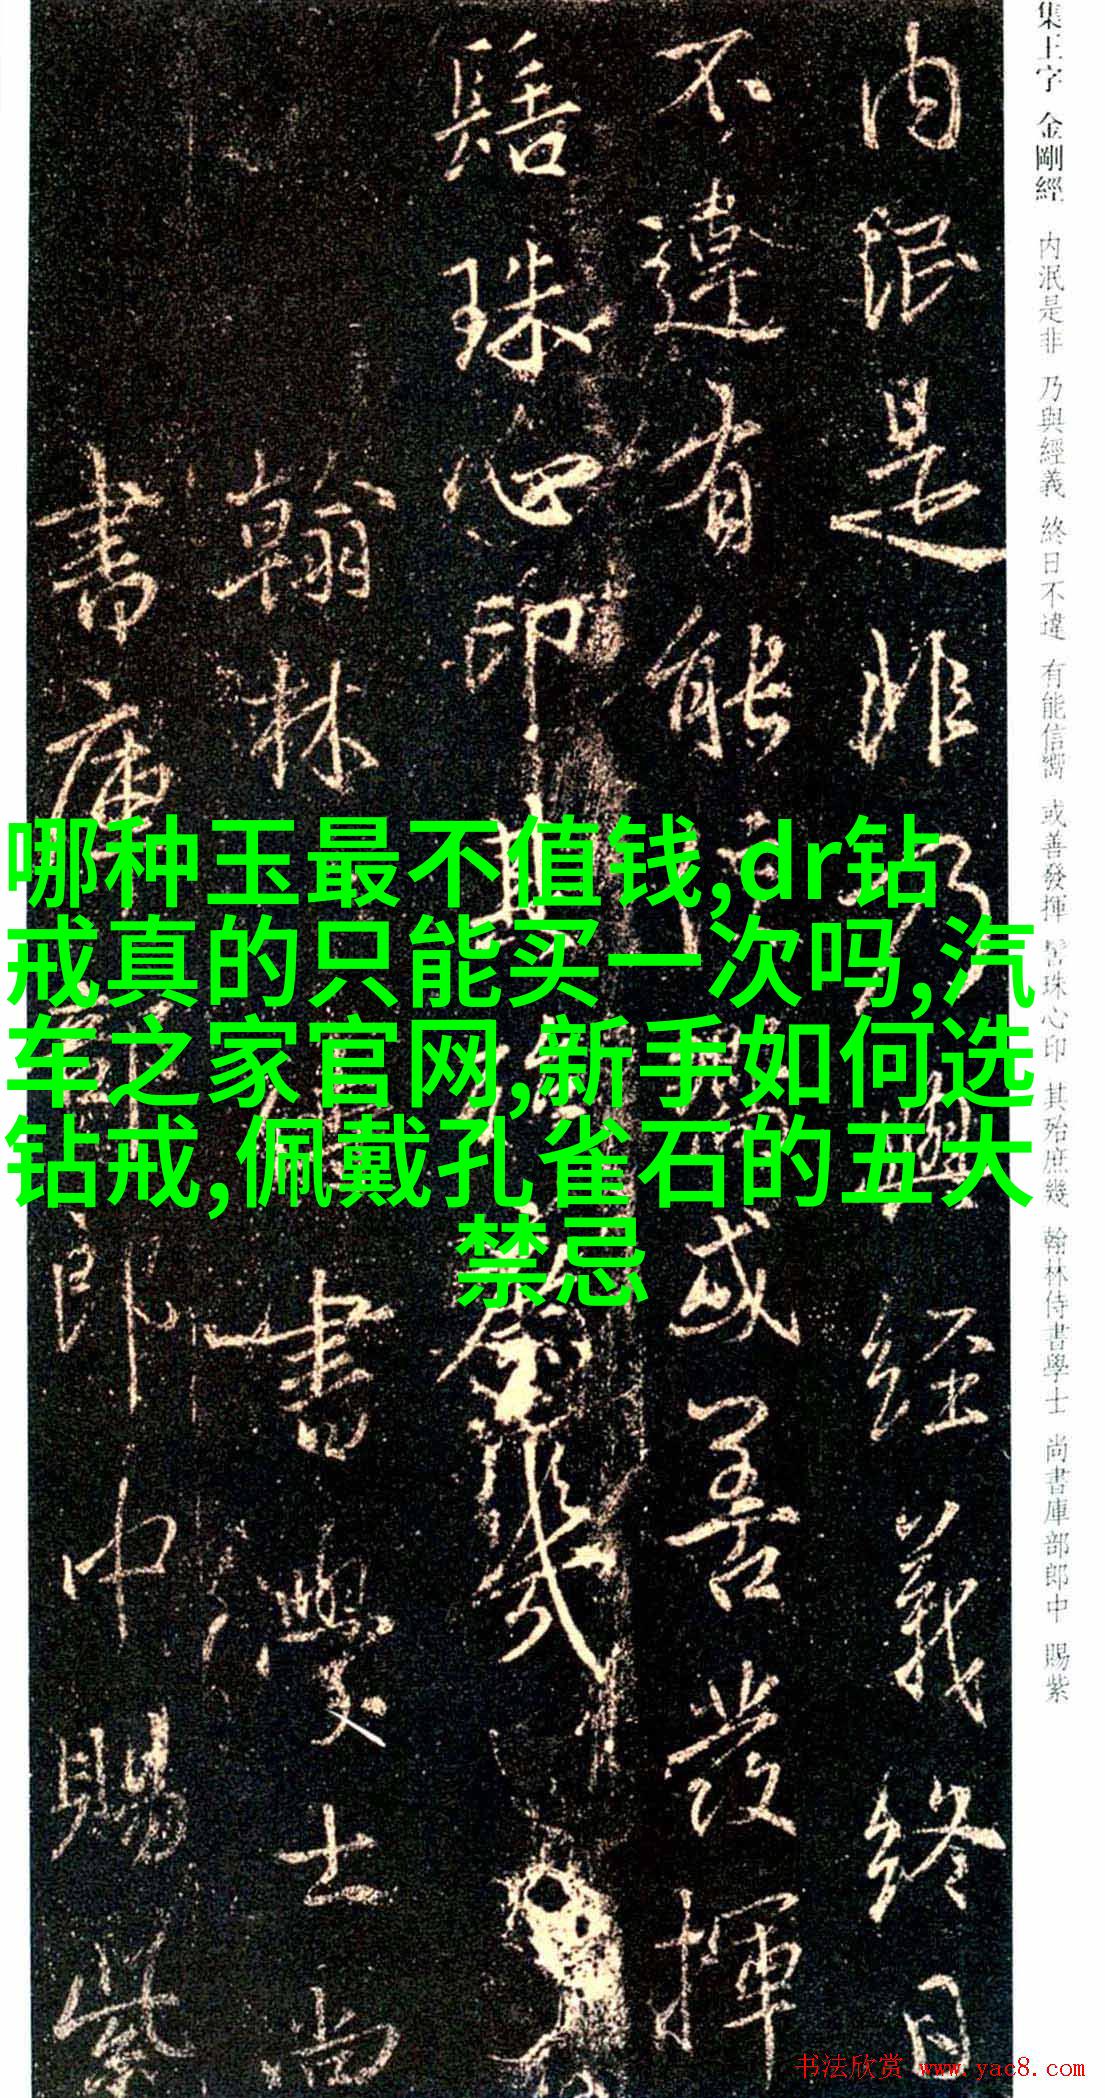 集王字 金剛經 内泯是非 乃與經義 終日不違 有能信嚮 或善發揮 髻珠心印 其殆庶幾 翰林侍書學士 尚書庫部郎中 賜紫
内泯是非乃與經義終日
不違有能信嚮或善發揮
髻珠心印其殆庶幾
翰林侍書學士尚
書庫部郎中賜紫
哪种玉最不值钱,dr钻
戒真的只能买一次吗,汽
车之家官网,新手如何选
钻戒,佩戴孔雀石的五大
禁忌
书法欣赏 www.yac8.com